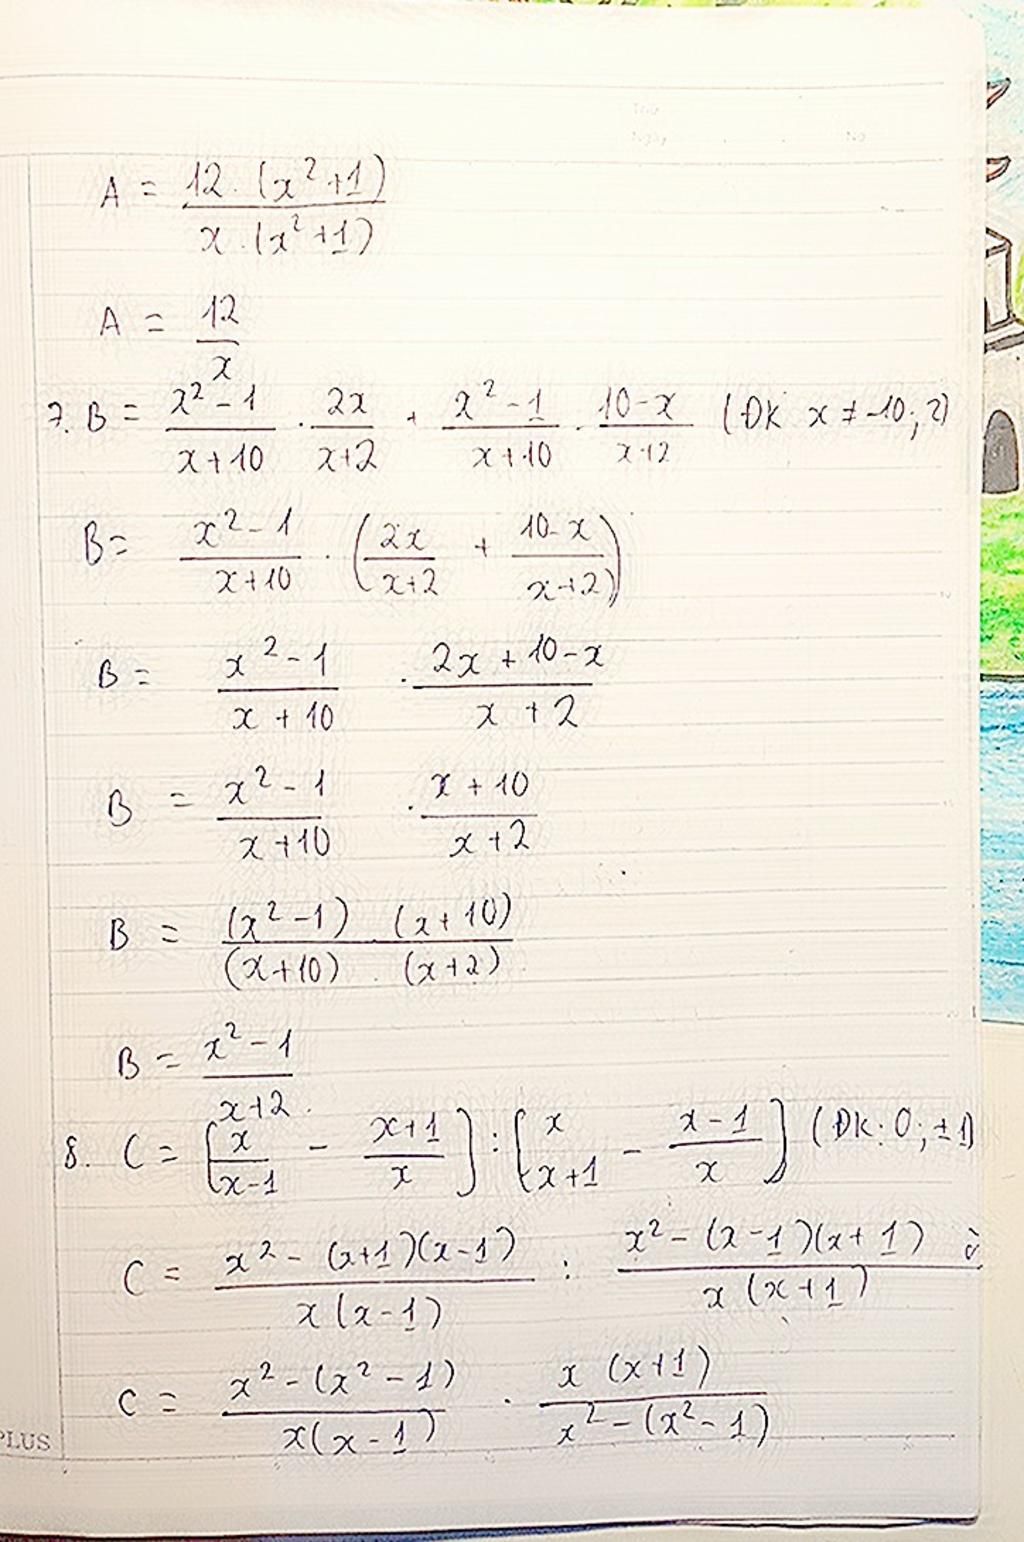 Thứ
Ngày No
A = 12 . (x² + 1) / x . (x² + 1)
A = 12 / x
7. B = x² - 1 / x + 10 . 2x / x + 2 + x² - 1 / x + 10 . 10 - x / x + 2 (ĐK x ≠ -10; 2)
B = x² - 1 / x + 10 . (2x / x + 2 + 10 - x / x + 2)
B = x² - 1 / x + 10 . 2x + 10 - x / x + 2
B = x² - 1 / x + 10 . x + 10 / x + 2
B = (x² - 1) (x + 10) / (x + 10) . (x + 2)
B = x² - 1 / x + 2 .
8. C = [x / x - 1 - x + 1 / x] : [x / x + 1 - x - 1 / x] (ĐK: 0; ±1)
C = x² - (x + 1)(x - 1) / x (x - 1) : x² - (x - 1)(x + 1) / x (x + 1)
C = x² - (x² - 1) / x(x - 1) . x (x + 1) / x² - (x² - 1)
PLUS